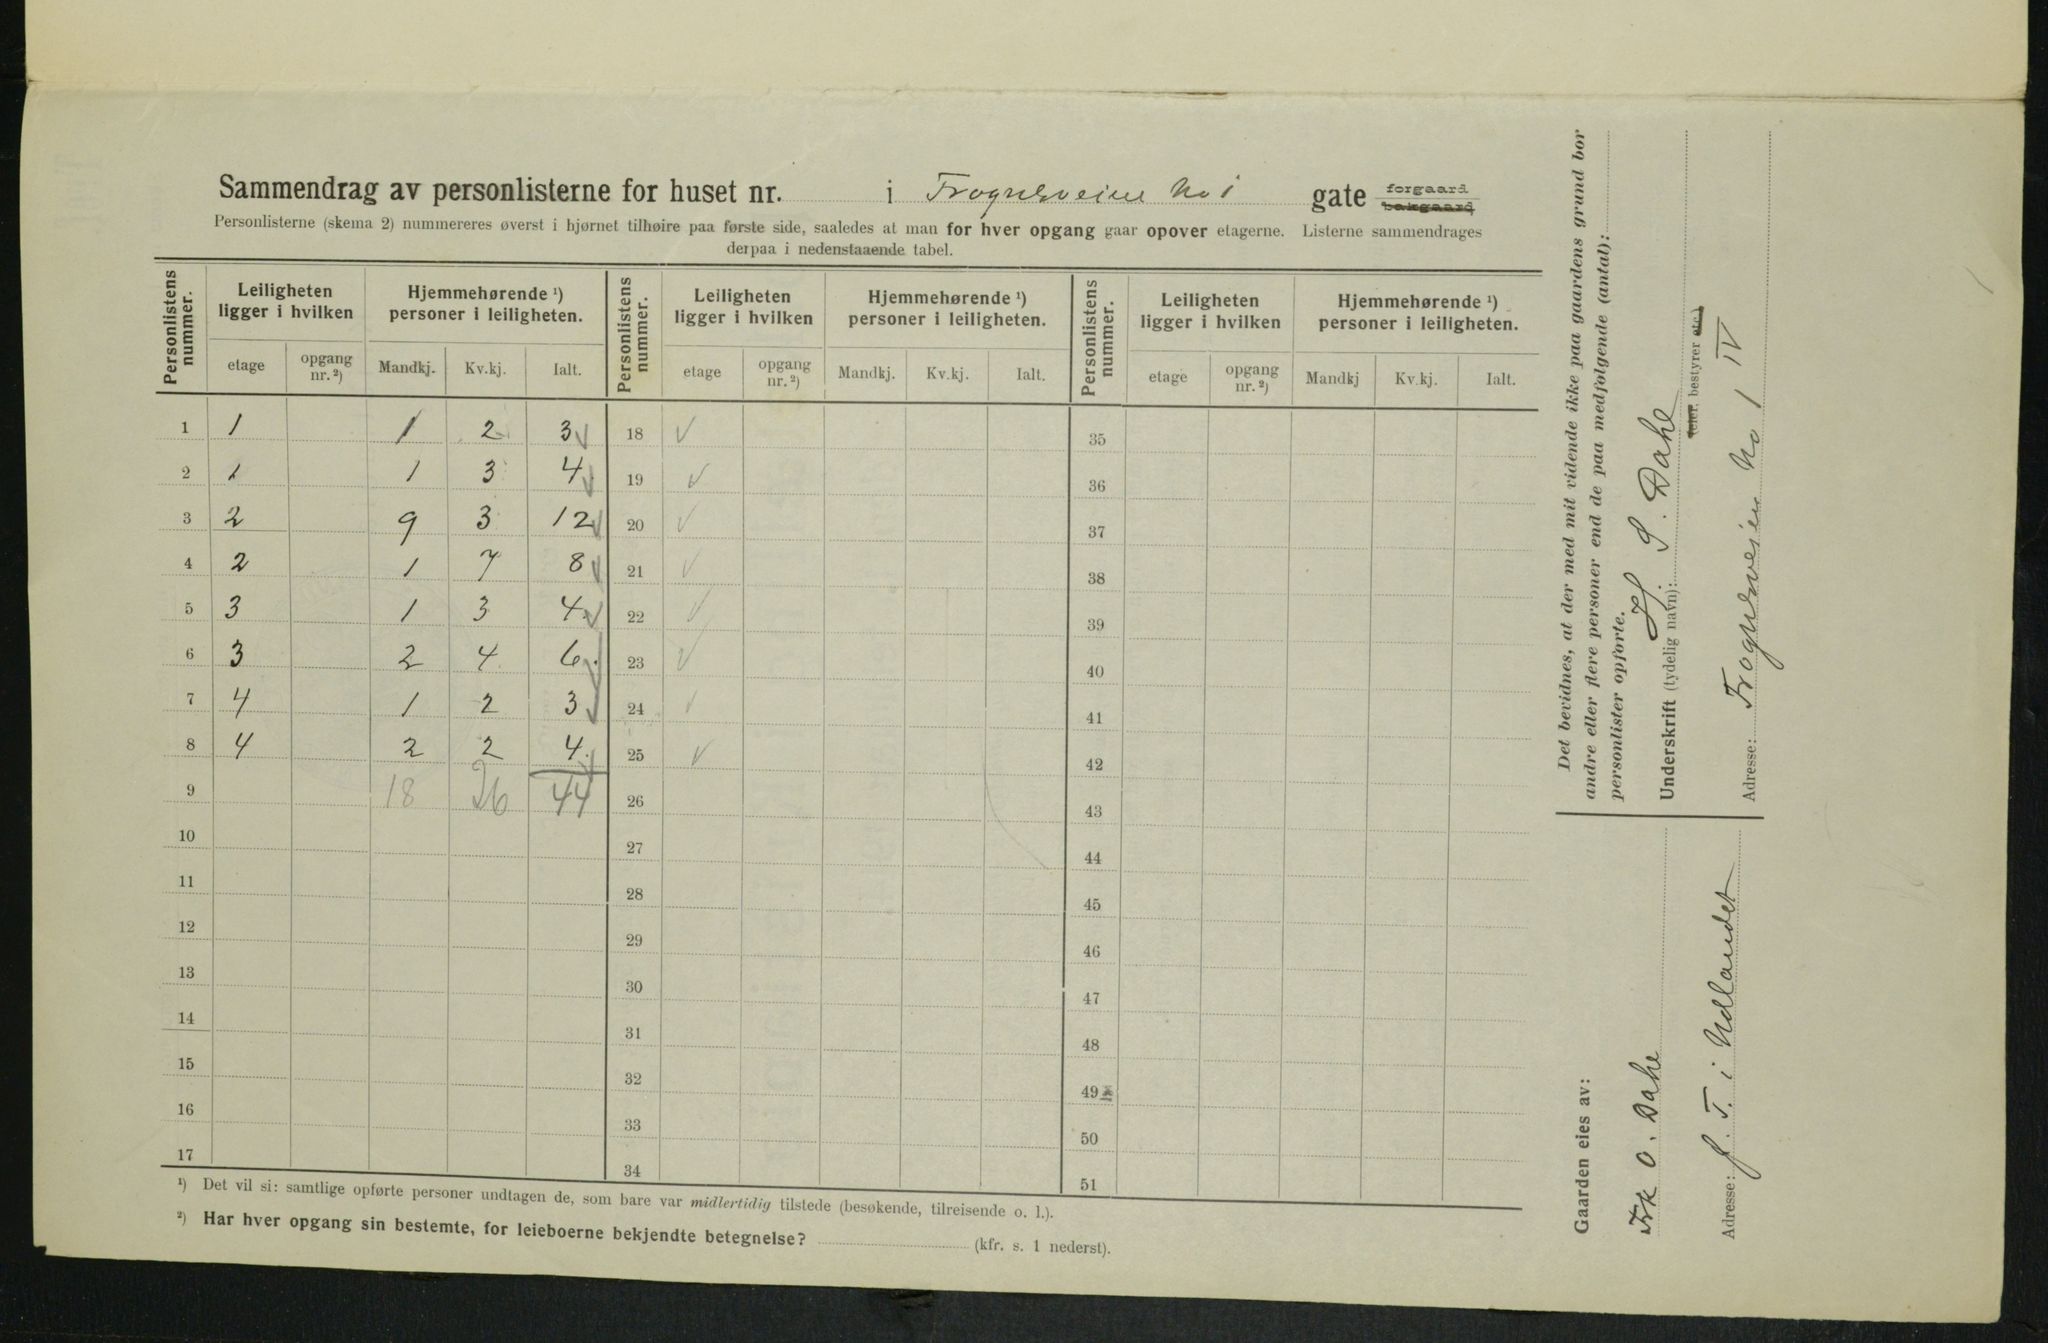 Sammendrag av personlisterne for huset nr. i Frognerveien No 1 gate forgaard bakgaard
Personlisterne (skema 2) nummereres øverst i hjørnet tilhøire paa første side, saaledes at man for hver opgang gaar opover etagerne. Listerne sammendrages
derpaa i nedenstaaende tabel.
Personlistens nummer. Leiligheten ligger i hvilken Hjemmehørende ¹) personer i leiligheten. Personlistens nummer. Leiligheten ligger i hvilken Hjemmehørende ¹) personer i leiligheten. Personlistens nummer. Leiligheten ligger i hvilken Hjemmehørende ¹) personer i leiligheten.
etage opgang nr. ²) Mandkj. Kv.kj. Ialt. etage opgang nr. ²) Mandkj. Kv.kj. Ialt. etage opgang nr. ²) Mandkj Kv.kj. Ialt.
1 1 1 2 3 ✓ 18 ✓ 35
2 1 1 3 4 ✓ 19 ✓ 36
3 2 9 3 12 ✓ 20 ✓ 37
4 2 1 7 8 ✓ 21 ✓ 38
5 3 1 3 4 ✓ 22 ✓ 39
6 3 2 4 6 ✓ 23 ✓ 40
7 4 1 2 3 ✓ 24 ✓ 41
8 4 2 2 4 ✓ 25 ✓ 42
9 18 26 44 26 43
10 27 44
11 28 45
12 29 46
13 30 47
14 31 48
15 32 49
16 33 50
17 34 51
¹) Det vil si: samtlige opførte personer undtagen de, som bare var midlertidig tilstede (besøkende, tilreisende o. l.).
²) Har hver opgang sin bestemte, for leieboerne bekjendte betegnelse? (kfr. s. 1 nederst).
Det bevidnes, at der med mit vidende ikke paa gaardens grund bor
andre eller flere personer end de paa medfølgende (antal):
personlister opførte.
Underskrift (tydelig navn): H. S. Dahl
(eier, bestyrer etc.)
Adresse: Frognerveien No 1 IV
Gaarden eies av:
Frk O. Dahl
Adresse: f. T. i Udlandet